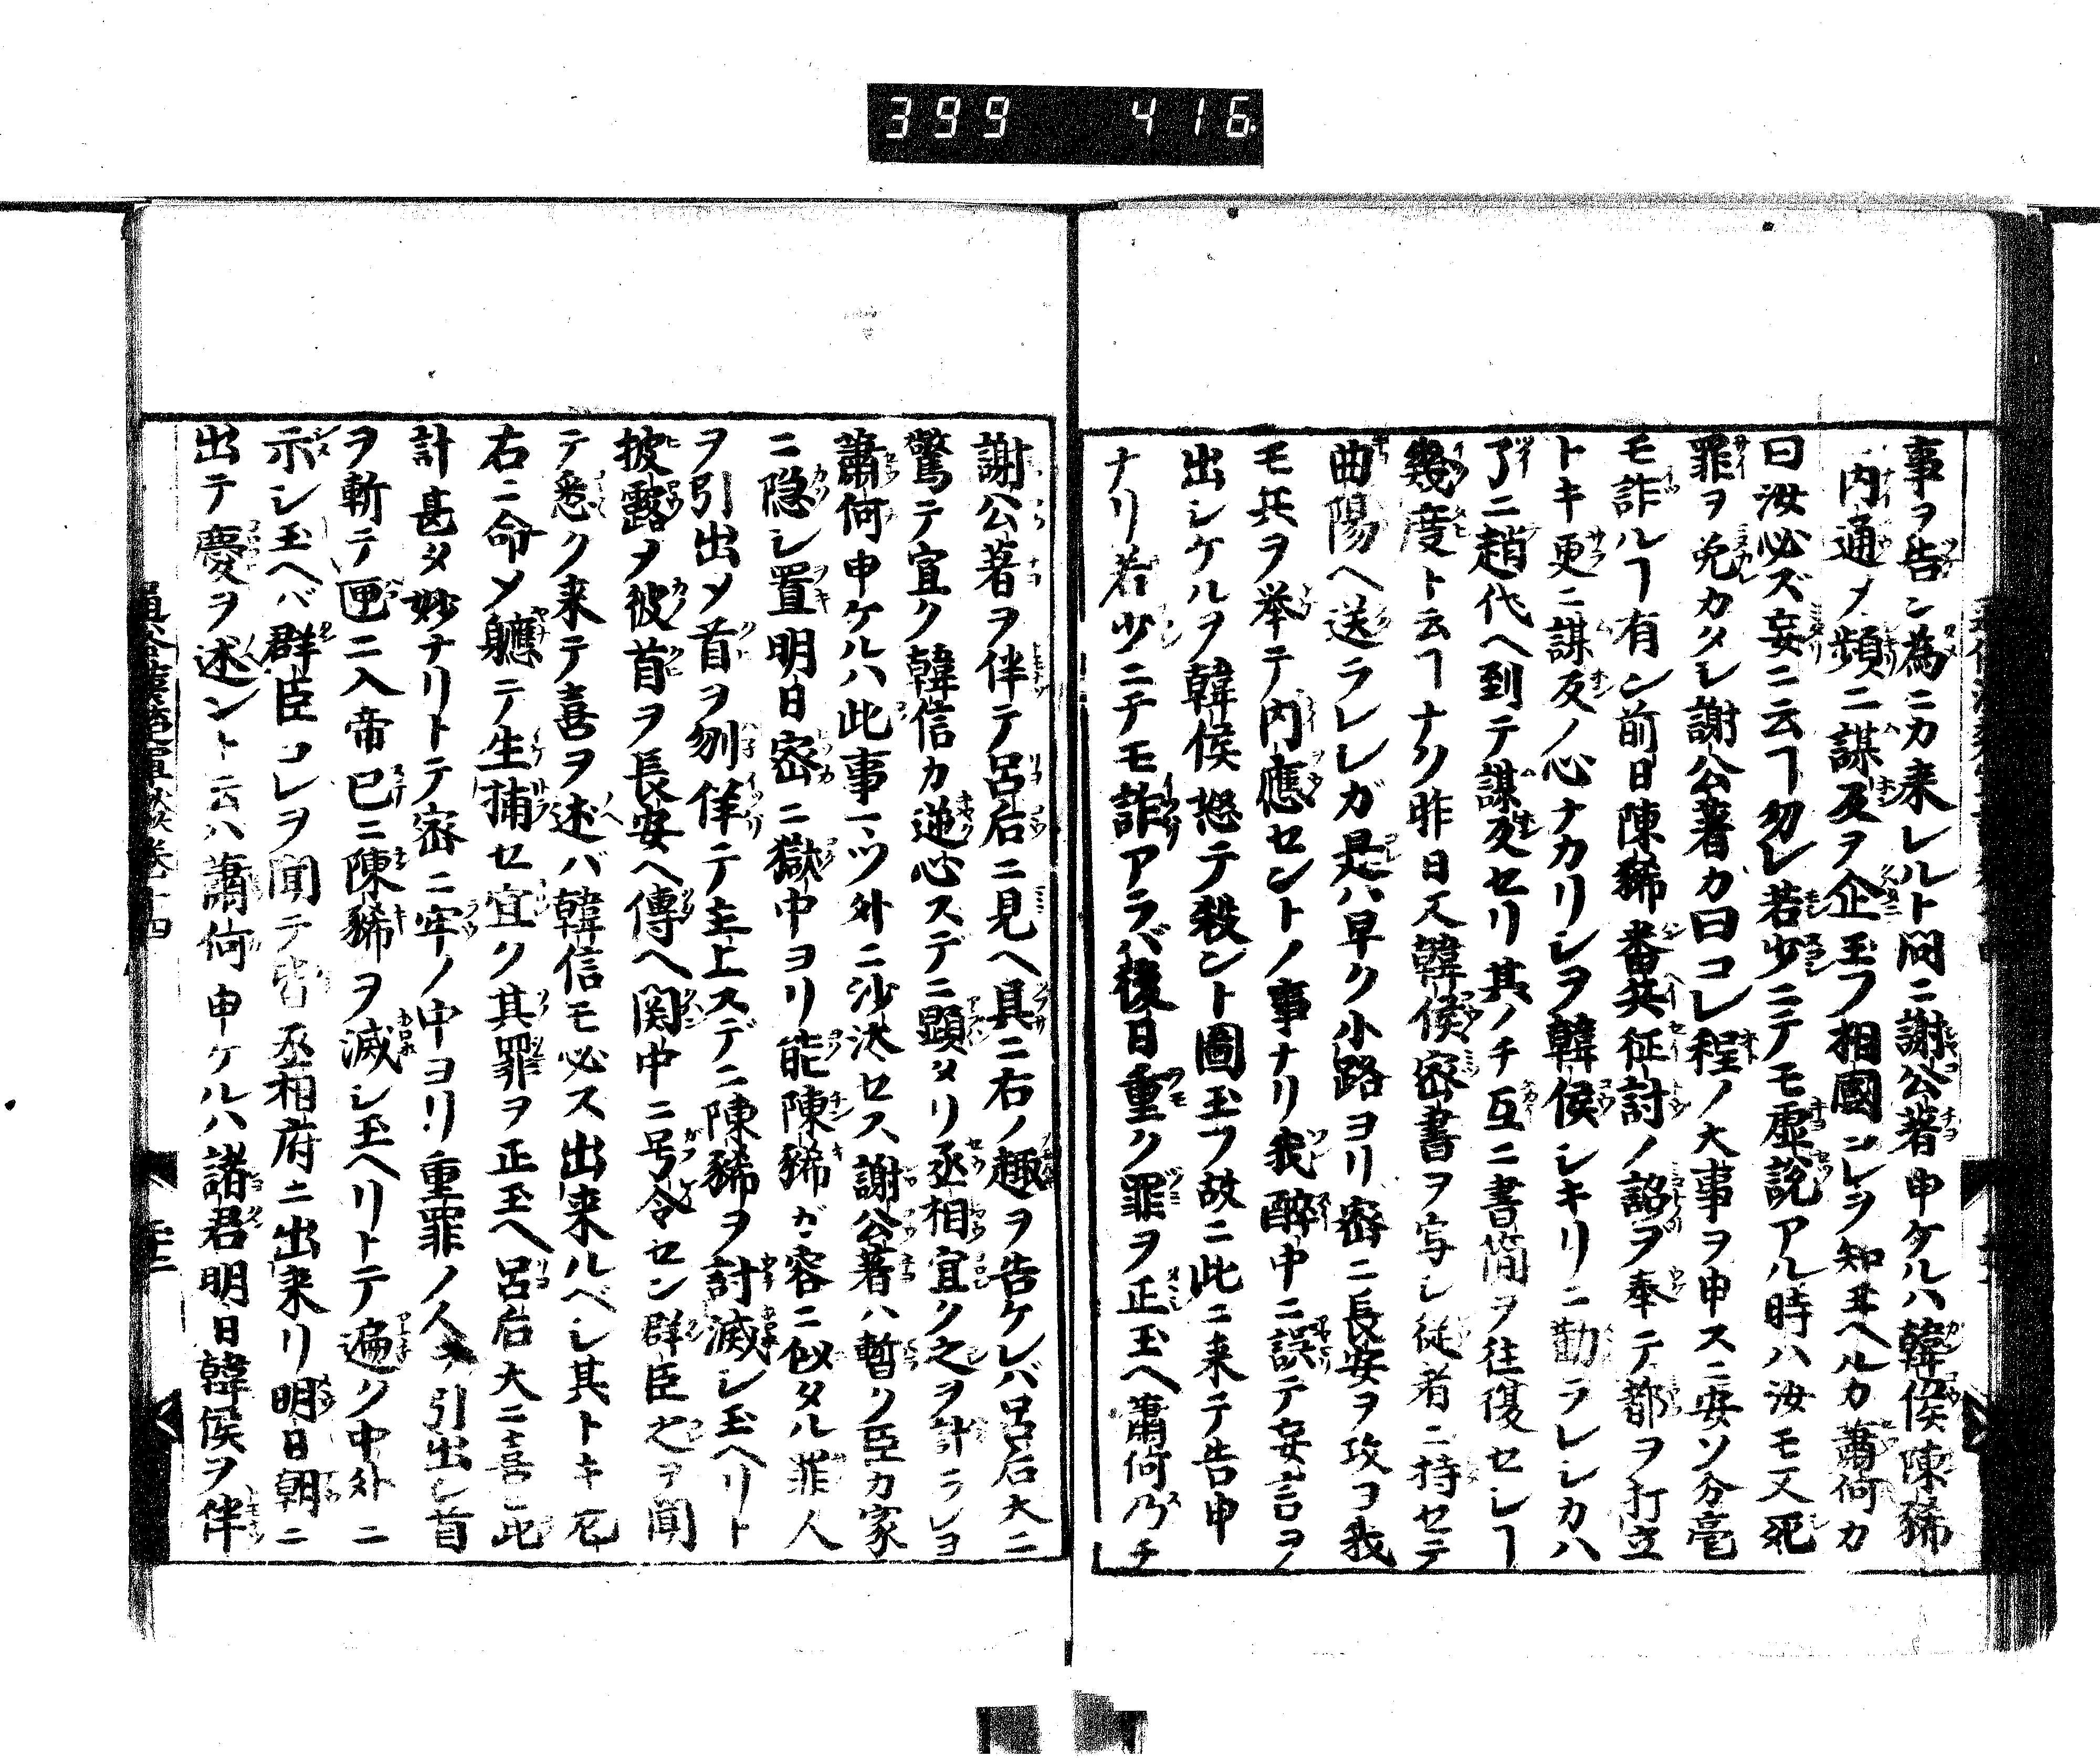 399 416
事ヲ告ン為ニカ来レルト問ニ謝公著申ケルハ韓侯陳豨
内通メ頻ニ謀反ヲ企玉フ相國コレヲ知玉ヘルカ蕭何カ
曰汝必ズ妄ニ云ヿ勿レ若少ニテモ虚説アル時ハ汝モ又死
罪ヲ免カタシ謝公著カ曰コレ程ノ大事ヲ申スニ安ソ分毫
モ詐ルヿ有ン前日陳豨番兵征討ノ詔ヲ奉テ都ヲ打立
トキ更ニ謀反ノ心ナカリシヲ韓侯シキリニ勧ラレシカハ
了ニ趙代ヘ到テ謀反セリ其ノチ互ニ書簡ヲ往復セシヿ
幾度ト云ヿナク昨日又韓侯密書ヲ写シ従者ニ持セテ
曲陽ヘ送ラレシガ是ハ早ク小路ヨリ密ニ長安ヲ攻ヨ我
モ兵ヲ挙テ内應セントノ事ナリ我醉中ニ誤テ妄言ヲ
出シケルヲ韓侯怒テ殺ント圖玉フ故ニ此ニ来テ告申
ナリ若少ニテモ詐アラバ後日重ク罪ヲ正玉ヘ蕭何乃チ
謝公著ヲ伴テ呂后ニ見ヘ具ニ右ノ趣ヲ告ケレバ呂后大ニ
驚テ宣ク韓信カ逆心スデニ顕タリ丞相宜ク之ヲ計ラレヨ
蕭何申ケルハ此事一ツ外ニ沙汰セス謝公著ハ暫ク臣カ家
ニ隠シ置明日密ニ獄中ヨリ能陳豨ガ容ニ似タル罪人
ヲ引出メ首ヲ刎佯テ主上スデニ陳豨ヲ討滅シ玉ヘリト
披露メ彼首ヲ長安ヘ傳ヘ関中ニ号令セン群臣之ヲ聞
テ悉ク来テ喜ヲ述バ韓信モ必ス出来ルベシ其トキ左
右ニ命メ軈テ生捕セ宜ク其罪ヲ正玉ヘ呂后大ニ喜ヒ此
計甚タ妙ナリトテ密ニ牢ノ中ヨリ重罪ノ人ヲ引出シ首
ヲ斬テ匣ニ入帝已ニ陳豨ヲ滅シ玉ヘリトテ遍ク中外ニ
示シ玉ヘバ群臣コレヲ聞テ皆丞相府ニ出来リ明日朝ニ
出テ慶ヲ述ント云ハ蕭何申ケルハ諸君明日韓侯ヲ伴